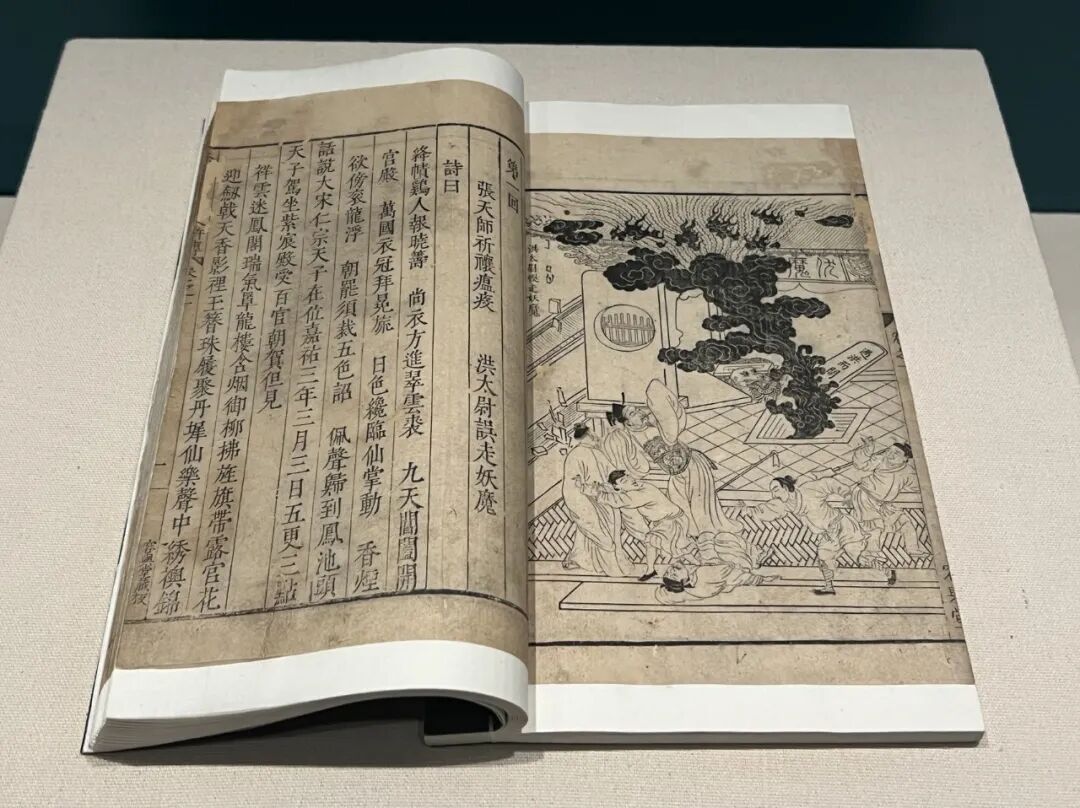 洪太尉誤走妖魔
伏魔
遇洪而開
第一回
張天師祈禳瘟疫　洪太尉誤走妖魔
詩曰
絳幘鷄人報曉籌　尚衣方進翠雲裘　九天閶闔開
宮殿　萬國衣冠拜冕旒　日色纔臨仙掌動　香煙
欲傍衮龍浮　朝罷須裁五色詔　佩聲歸到鳳池頭
話說大宋仁宗天子在位嘉祐三年三月三日五更三點
天子駕坐紫宸殿受百官朝賀但見
祥雲迷鳳閣瑞氣罩龍樓含烟御柳拂旌旗帶露宮花
迎劍戟天香影裡玉簪珠履聚丹墀仙樂聲中綉襖錦
容與堂藏板